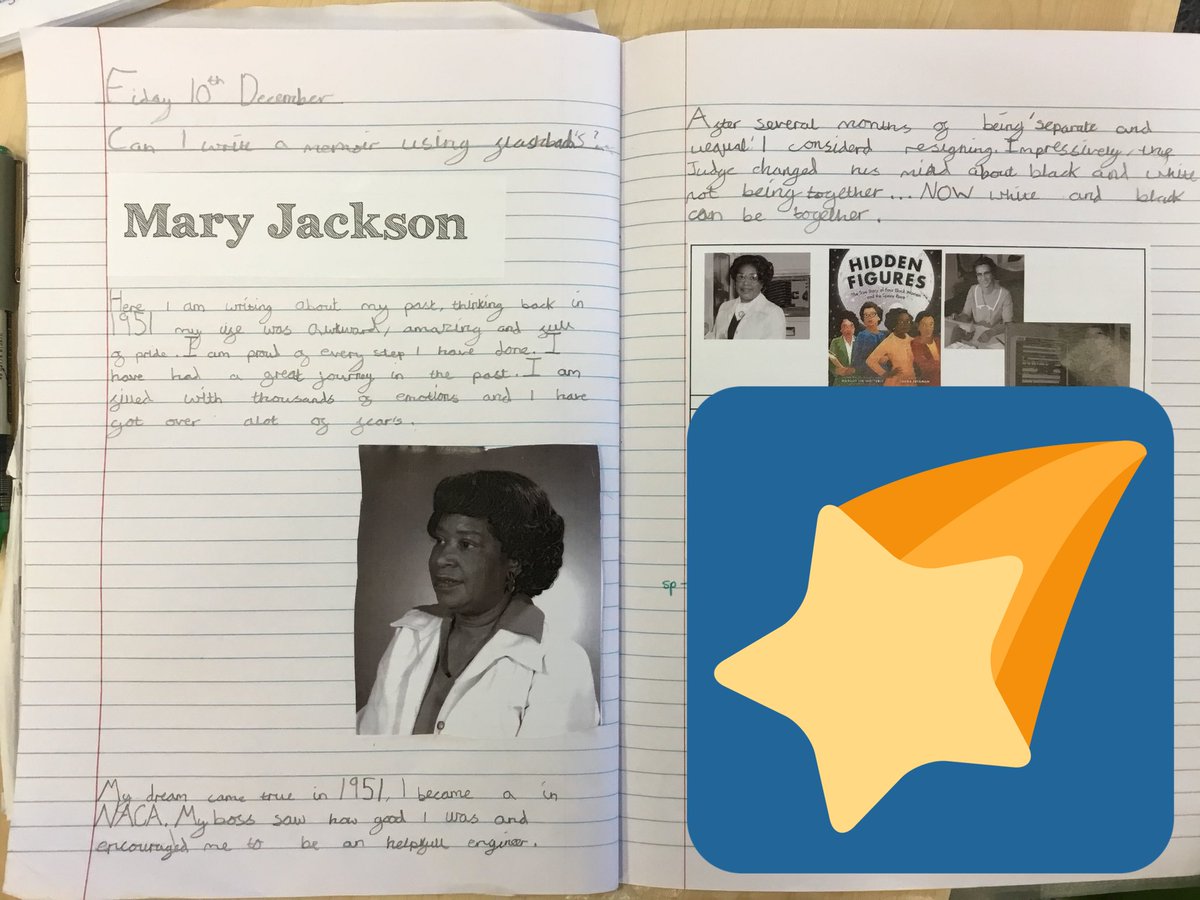 Friday 10th December
Can I write a memoir using flashback's?
Mary Jackson
Here I am writing about my past, thinking back in
1951 my life was awkward, amazing and full
of pride. I am proud of every step I have done. I
have had a great journey in the past. I am
filled with thousands of emotions and I have
got over alot of fear's.
My dream came true in 1951, I became a in
NACA. My boss saw how good I was and
encouraged me to be an helpfull engineer.
After several months of being 'separate and
unequal' I considerd resigning. Impressively, the
Judge changed his mind about black and white
not being together... NOW white and black
can be together.
HIDDEN
FIGURES
The True Story of Four Black Women
and the Space Race
sp